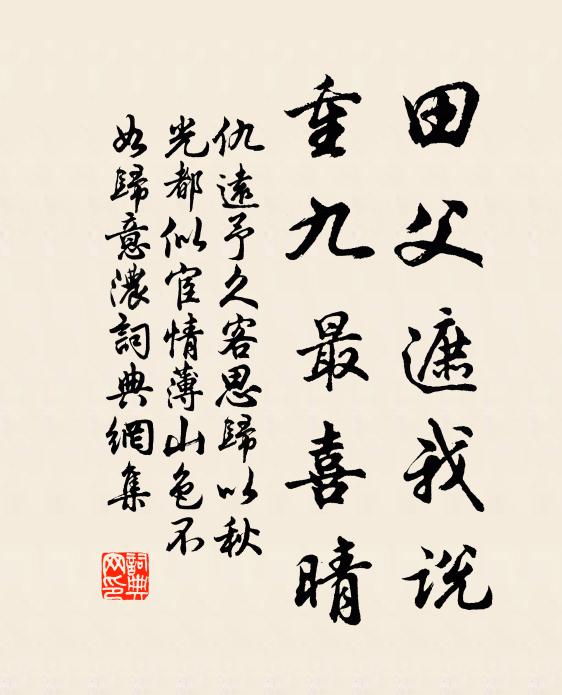 田父遮我说
重九最喜晴
仇遠予久客思歸以秋
光都似宦情薄山色不
如歸意濃詞典網集
詞典网印